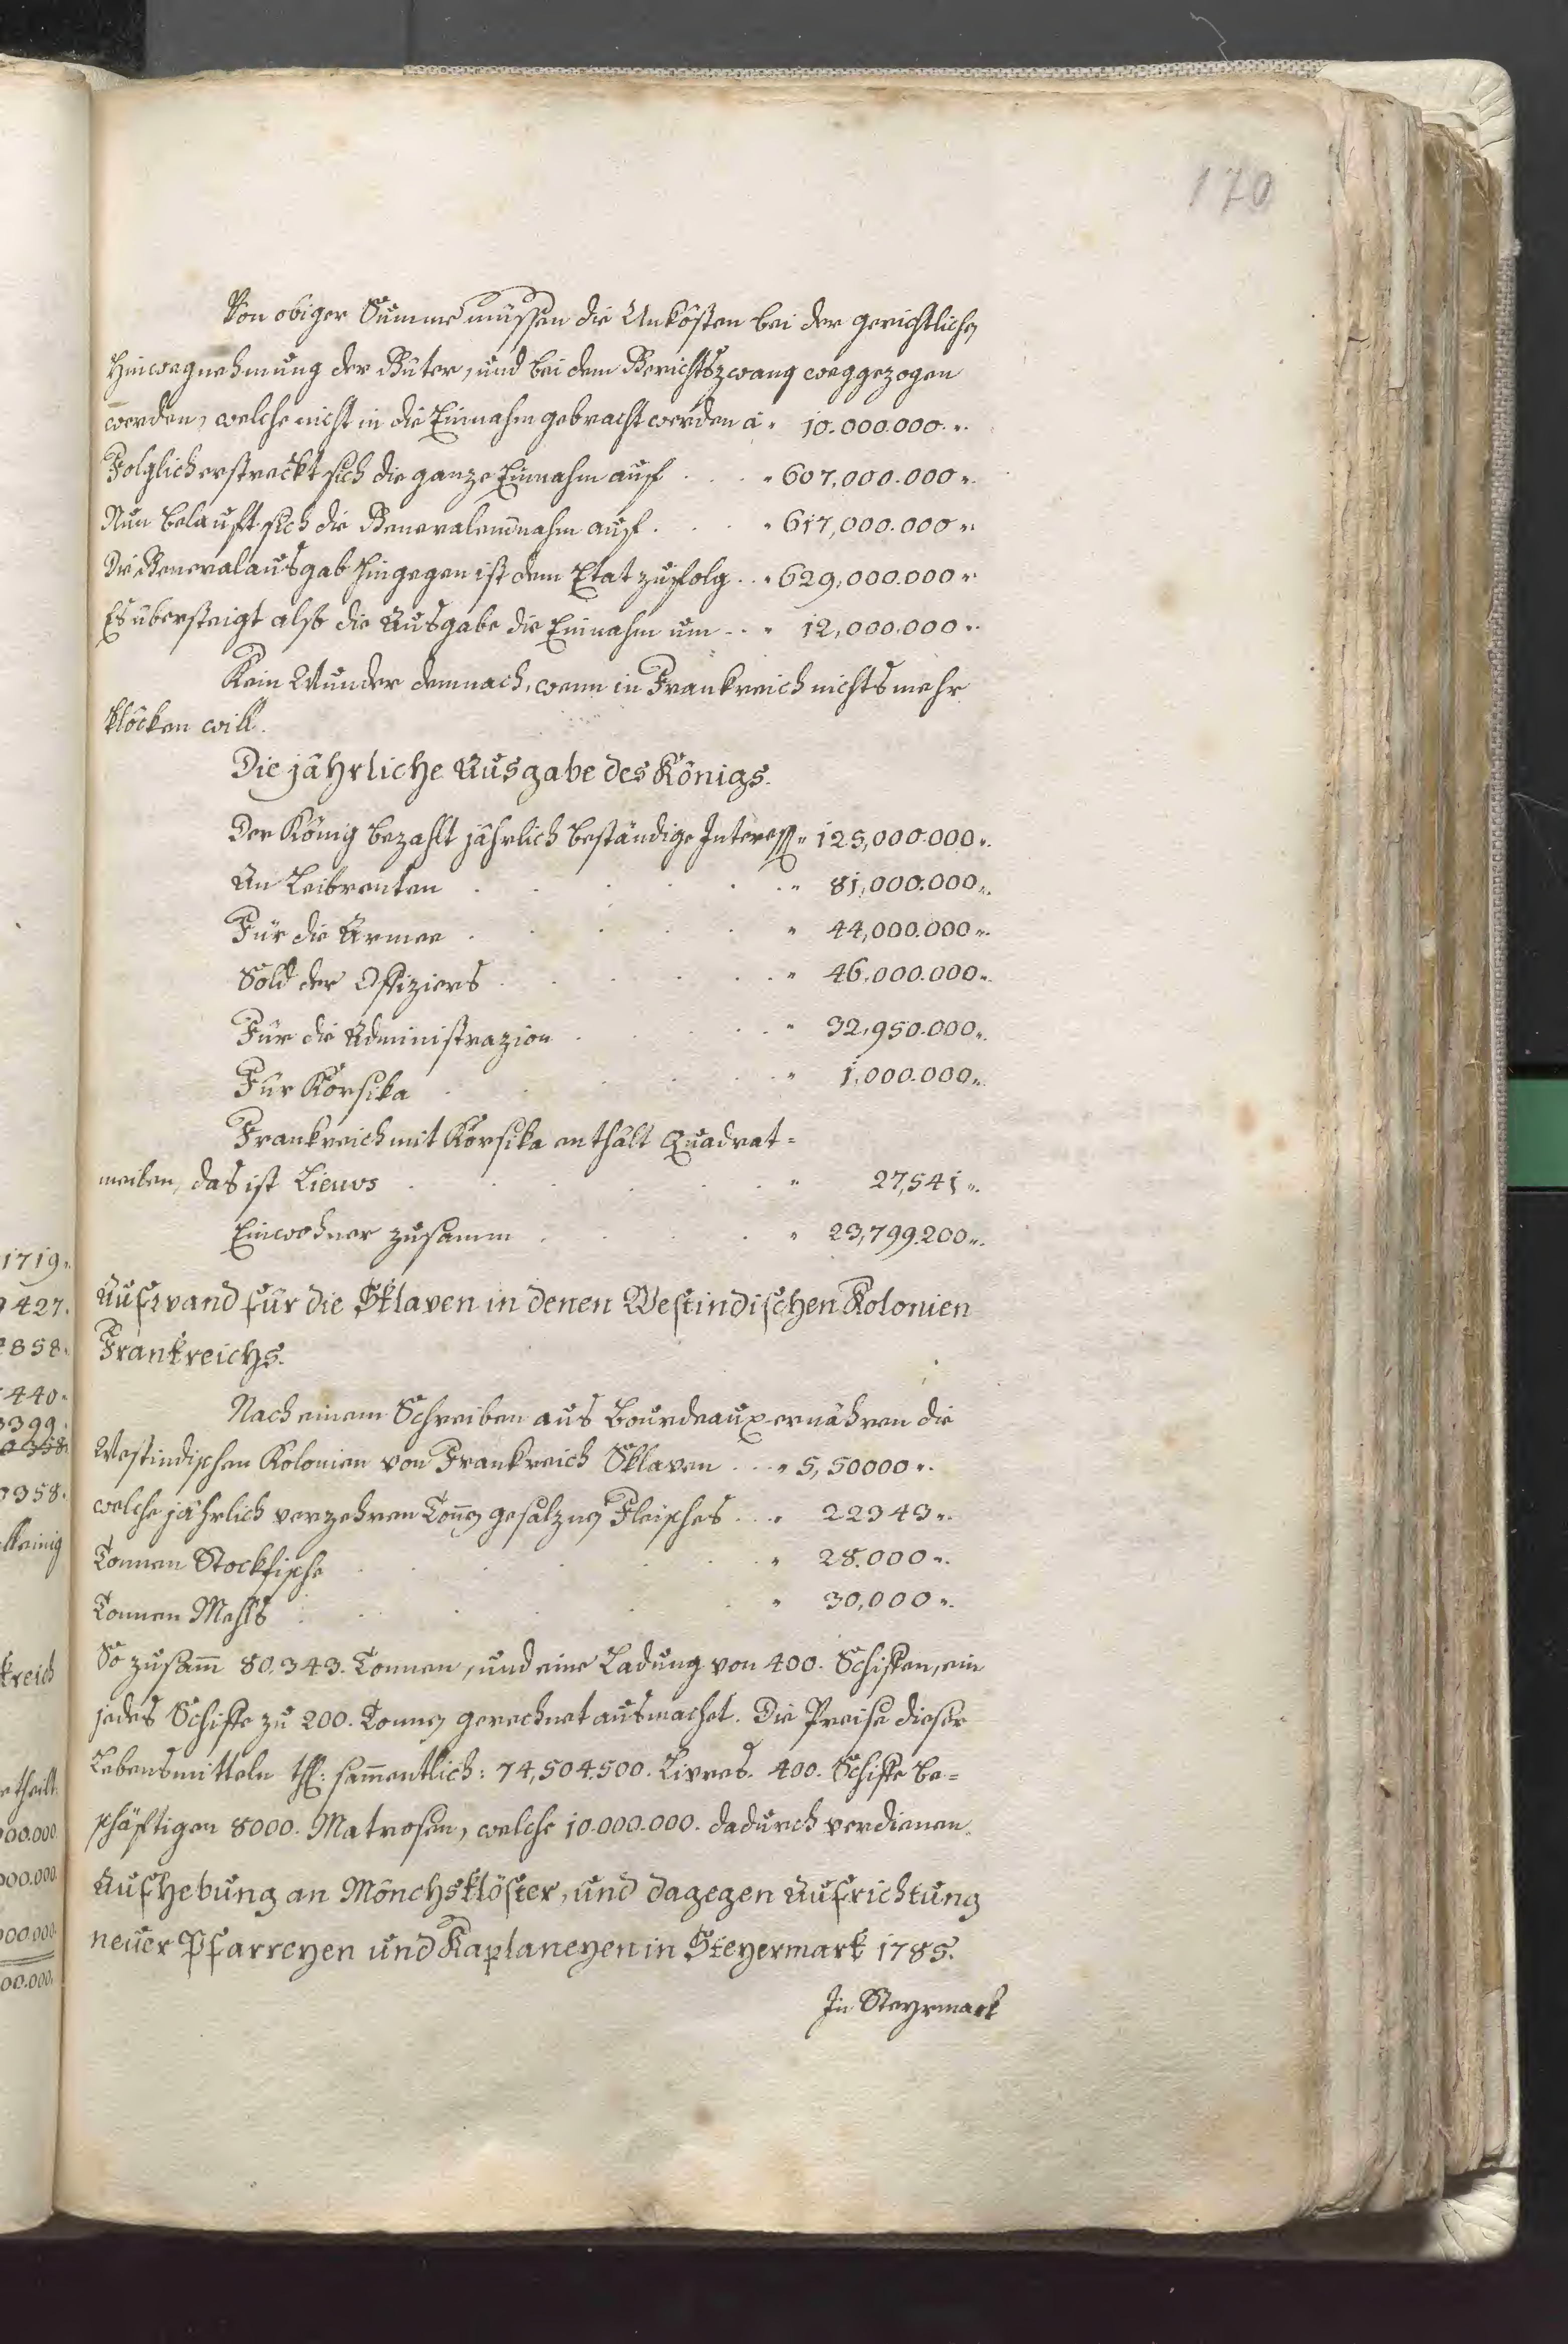 170
Von obiger Summe müssen die Unkösten bei der gerichtlichen
Hinwegnehmung der Güter, und bei dem Gerichtszwang weggezogen
werden, welche nicht in die Einnahm gebracht werden a " 10.000.000."
Folglich erstreckt sich die ganze Einnahm auf . . . " 607,000.000 "
Nun belauft sich die Generaleinnahm auf . . . " 617,000.000 "
Die Generalausgab hingegen ist dem Etat zufolg . . " 629,000.000 "
Es übersteigt also die Ausgabe die Einnahm um . . " 12,000.000 "
Kein Wunder demnach, wenn in Frankreich nichts mehr
klöcken will.
Die jährliche Ausgabe des Königs.
Der König bezahlt jährlich beständige Interess " 125,000.000 "
An Leibrenten . . . . . " 81,000.000 "
Für die Armee . . . . . " 44,000.000 "
Sold der Offiziers . . . . " 46,000.000 "
Für die Administrazion . . . " 32,950.000 "
Für Korsika . . . . . " 1,000.000 "
Frankreich mit Korsika enthält Quadrat=
meilen, das ist Lieuvs . . . . . " 27,541 "
Einwohner zusamm . . . . " 23,799.200 "
Aufwand für die Sklaven in denen Westindischen Kolonien
Frankreichs.
Nach einem Schreiben aus Bourdeaux ernähren die
Westindischen Kolonien von Frankreich Sklaven . . " 5,50000 "
welche jährlich verzehren Tonnen gesalznen Fleisches . . " 22343 "
Tonnen Stockfische . . . . . " 28.000 "
Tonnen Mehls . . . . . " 30,000 "
So zusam̄ 80.343. Tonnen, und eine Ladung von 400. Schiffen, ein
jedes Schiffe zu 200. Tonnen gerechnet ausmachet. Die Preise dieser
Lebensmitteln sam̄entlich: 74,504.500. Livres. 400. Schiffe be=
schäftigen 8000. Matrosen, welche 10.000.000. dadurch verdienen.
Aufhebung an Mönchsklöster, und dagegen Aufrichtung
neüer Pfarreyen und Kaplaneyen in Steyermark 1785.
In Steyrmark
1719.
427.
858.
440.
3399.
358.
3358.
kreich
etheilt.
00.000.
000.000.
000.000.
00.000.